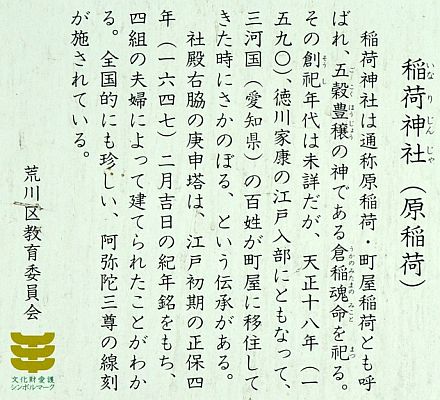 稲荷神社（原稲荷）
いなりじんじゃ
稲荷神社は通称原稲荷・町屋稲荷とも呼
ばれ、五穀豊穣の神である倉稲魂命を祀る。
ごこくほうじょう
うかのみたまのみこと
まつ
その創祀年代は未詳だが、天正十八年（一
そうし
五九〇）、徳川家康の江戸入部にともなって、
三河国（愛知県）の百姓が町屋に移住して
きた時にさかのぼる、という伝承がある。
社殿右脇の庚申塔は、江戸初期の正保四
年（一六四七）二月吉日の紀年銘をもち、
四組の夫婦によって建てられたことがわか
る。全国的にも珍しい、阿弥陀三尊の線刻
が施されている。
荒川区教育委員会
文化財愛護
シンボルマーク